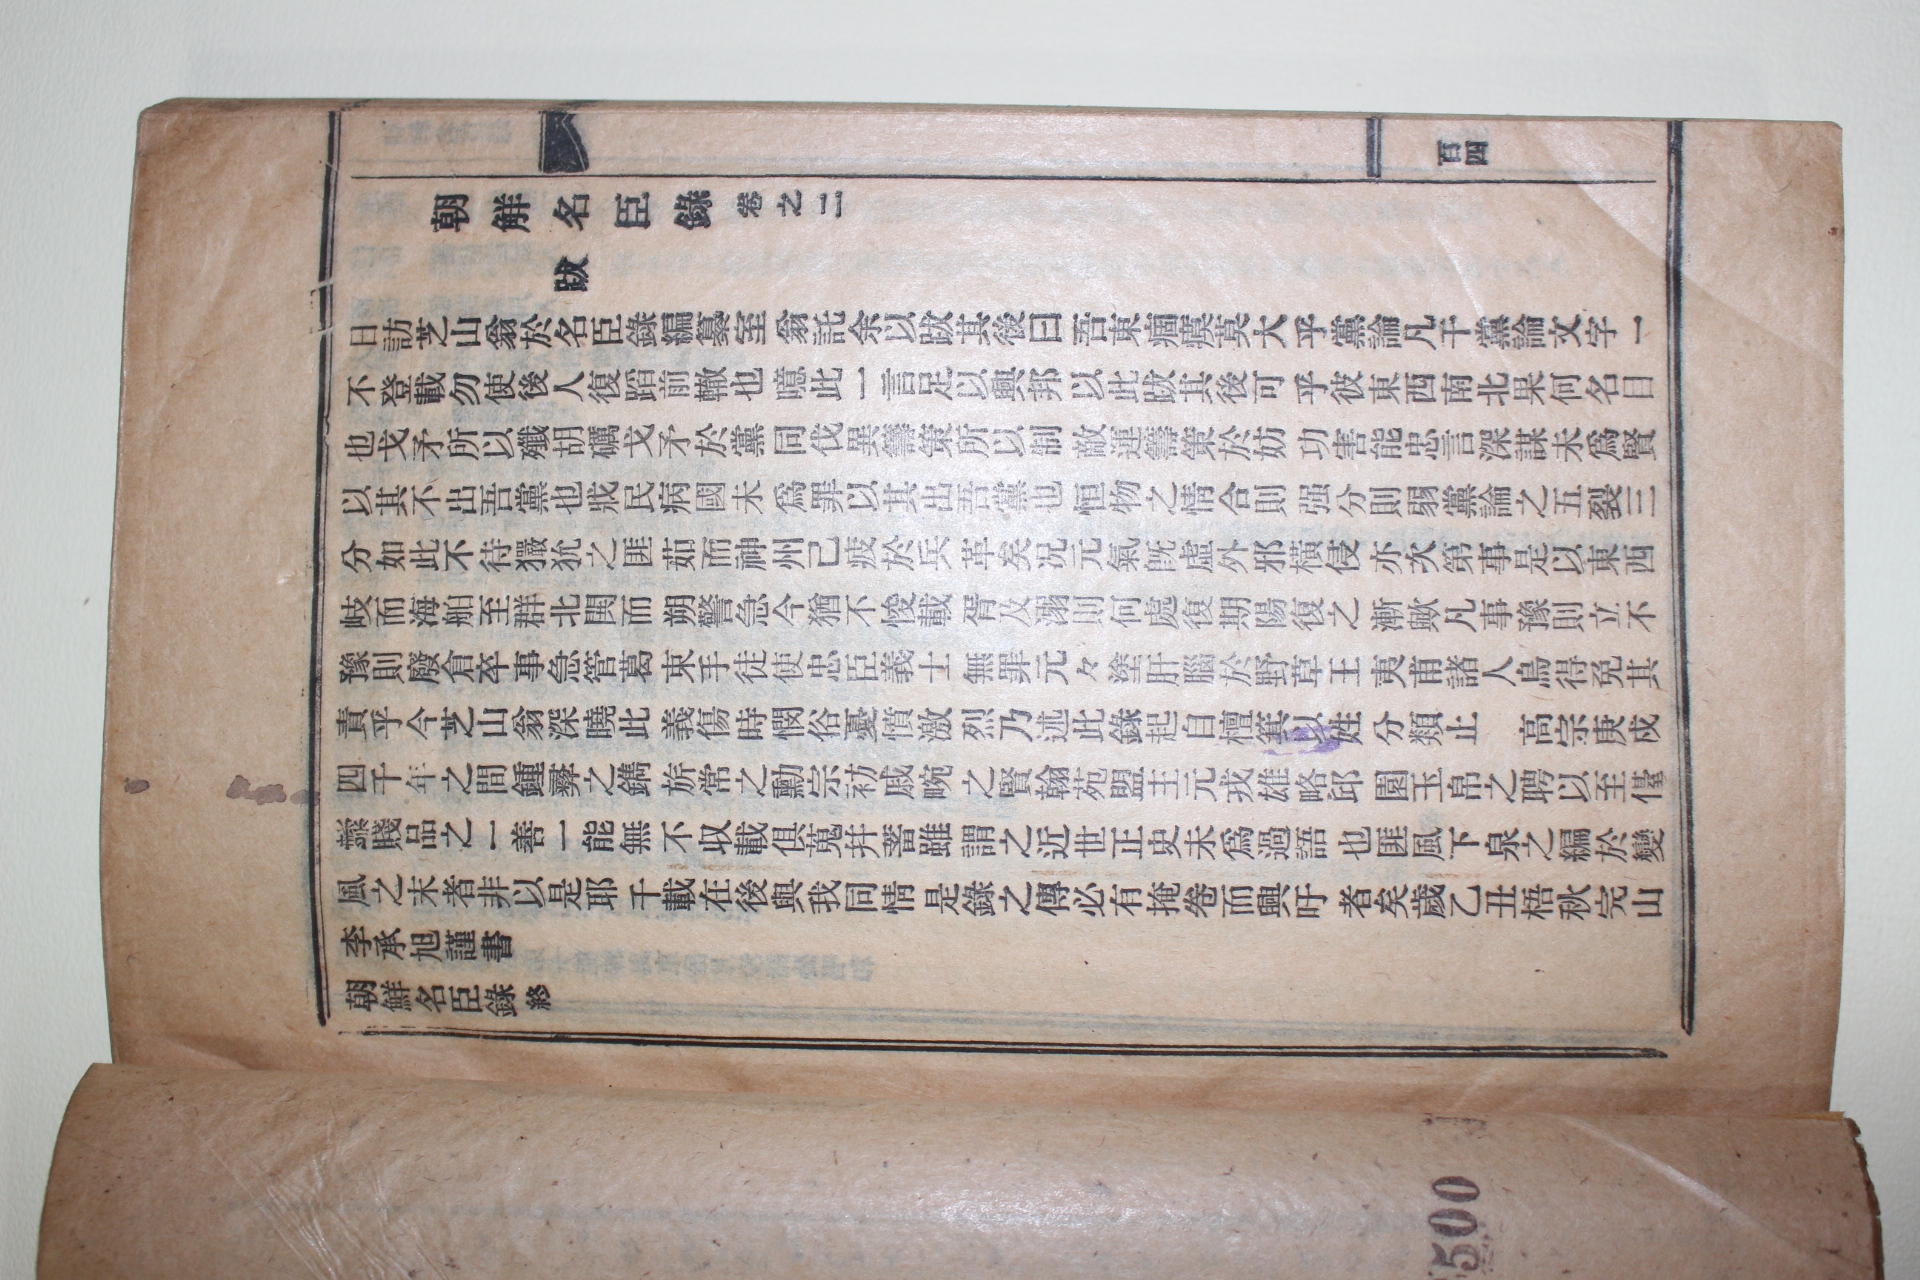 朝鮮名臣錄 卷之二
跋
日訪芝山翁於名臣錄編纂室翁託余以跋其後曰吾東痼瘼莫大乎黨論凡干黨論文字一
不登載勿使後人復蹈前轍也噫此一言足以興邦以此跋其後可乎彼東西南北果何名目
也戈矛所以殲胡礪戈矛於黨同伐異籌策所以制敵運籌策於妨功害能忠言深謀未爲賢
以其不出吾黨也戕民病國未爲罪以其出吾黨也恒物之情合則强分則弱黨論之五裂三
分如此不待玁狁之匪茹而神州己疲於兵革矣况元氣旣虛外邪橫侵亦次第事是以東西
岐而海舶至群北閧而朔警急今猶不悛載胥及溺則何處復期陽復之漸歟凡事豫則立不
豫則廢倉卒事急管葛束手徒使忠臣義士無罪元々塗肝腦於野草王夷甫諸人烏得免其
責乎今芝山翁深曉此義傷時憫俗憂憤激烈乃述此錄起自檀箕以姓分類止 高宗庚戍
四千年之間鍾彛之鐫旂常之勳宗祊戚畹之賢翰苑盟主元戎雄略邱園玉帛之聘以至儓
儓賤品之一善一能無不収載俱蒐幷蓄雖謂之近世正史未爲過語也匪風下泉之編於變
風之末者非以是耶千載在後與我同情是錄之傳必有掩卷而興吁者矣歲乙丑梧秋完山
李承旭謹書
朝鮮名臣錄 終
百四
500